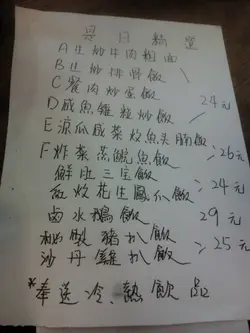 是日精選
A 生炒牛肉粗面
B 生炒排骨飯
C 餐肉炒蛋飯
D 咸魚雞粒炒飯 24元
E 涼瓜咸菜炆魚头腩飯
F 炸菜蒸鯇魚飯 26元
鮮肚三宝飯
紅炆花生鳳爪飯 24元
鹵水鵝飯 29元
秘製豬扒飯
沙丹雞扒飯 25元
*奉送冷、熱飲品